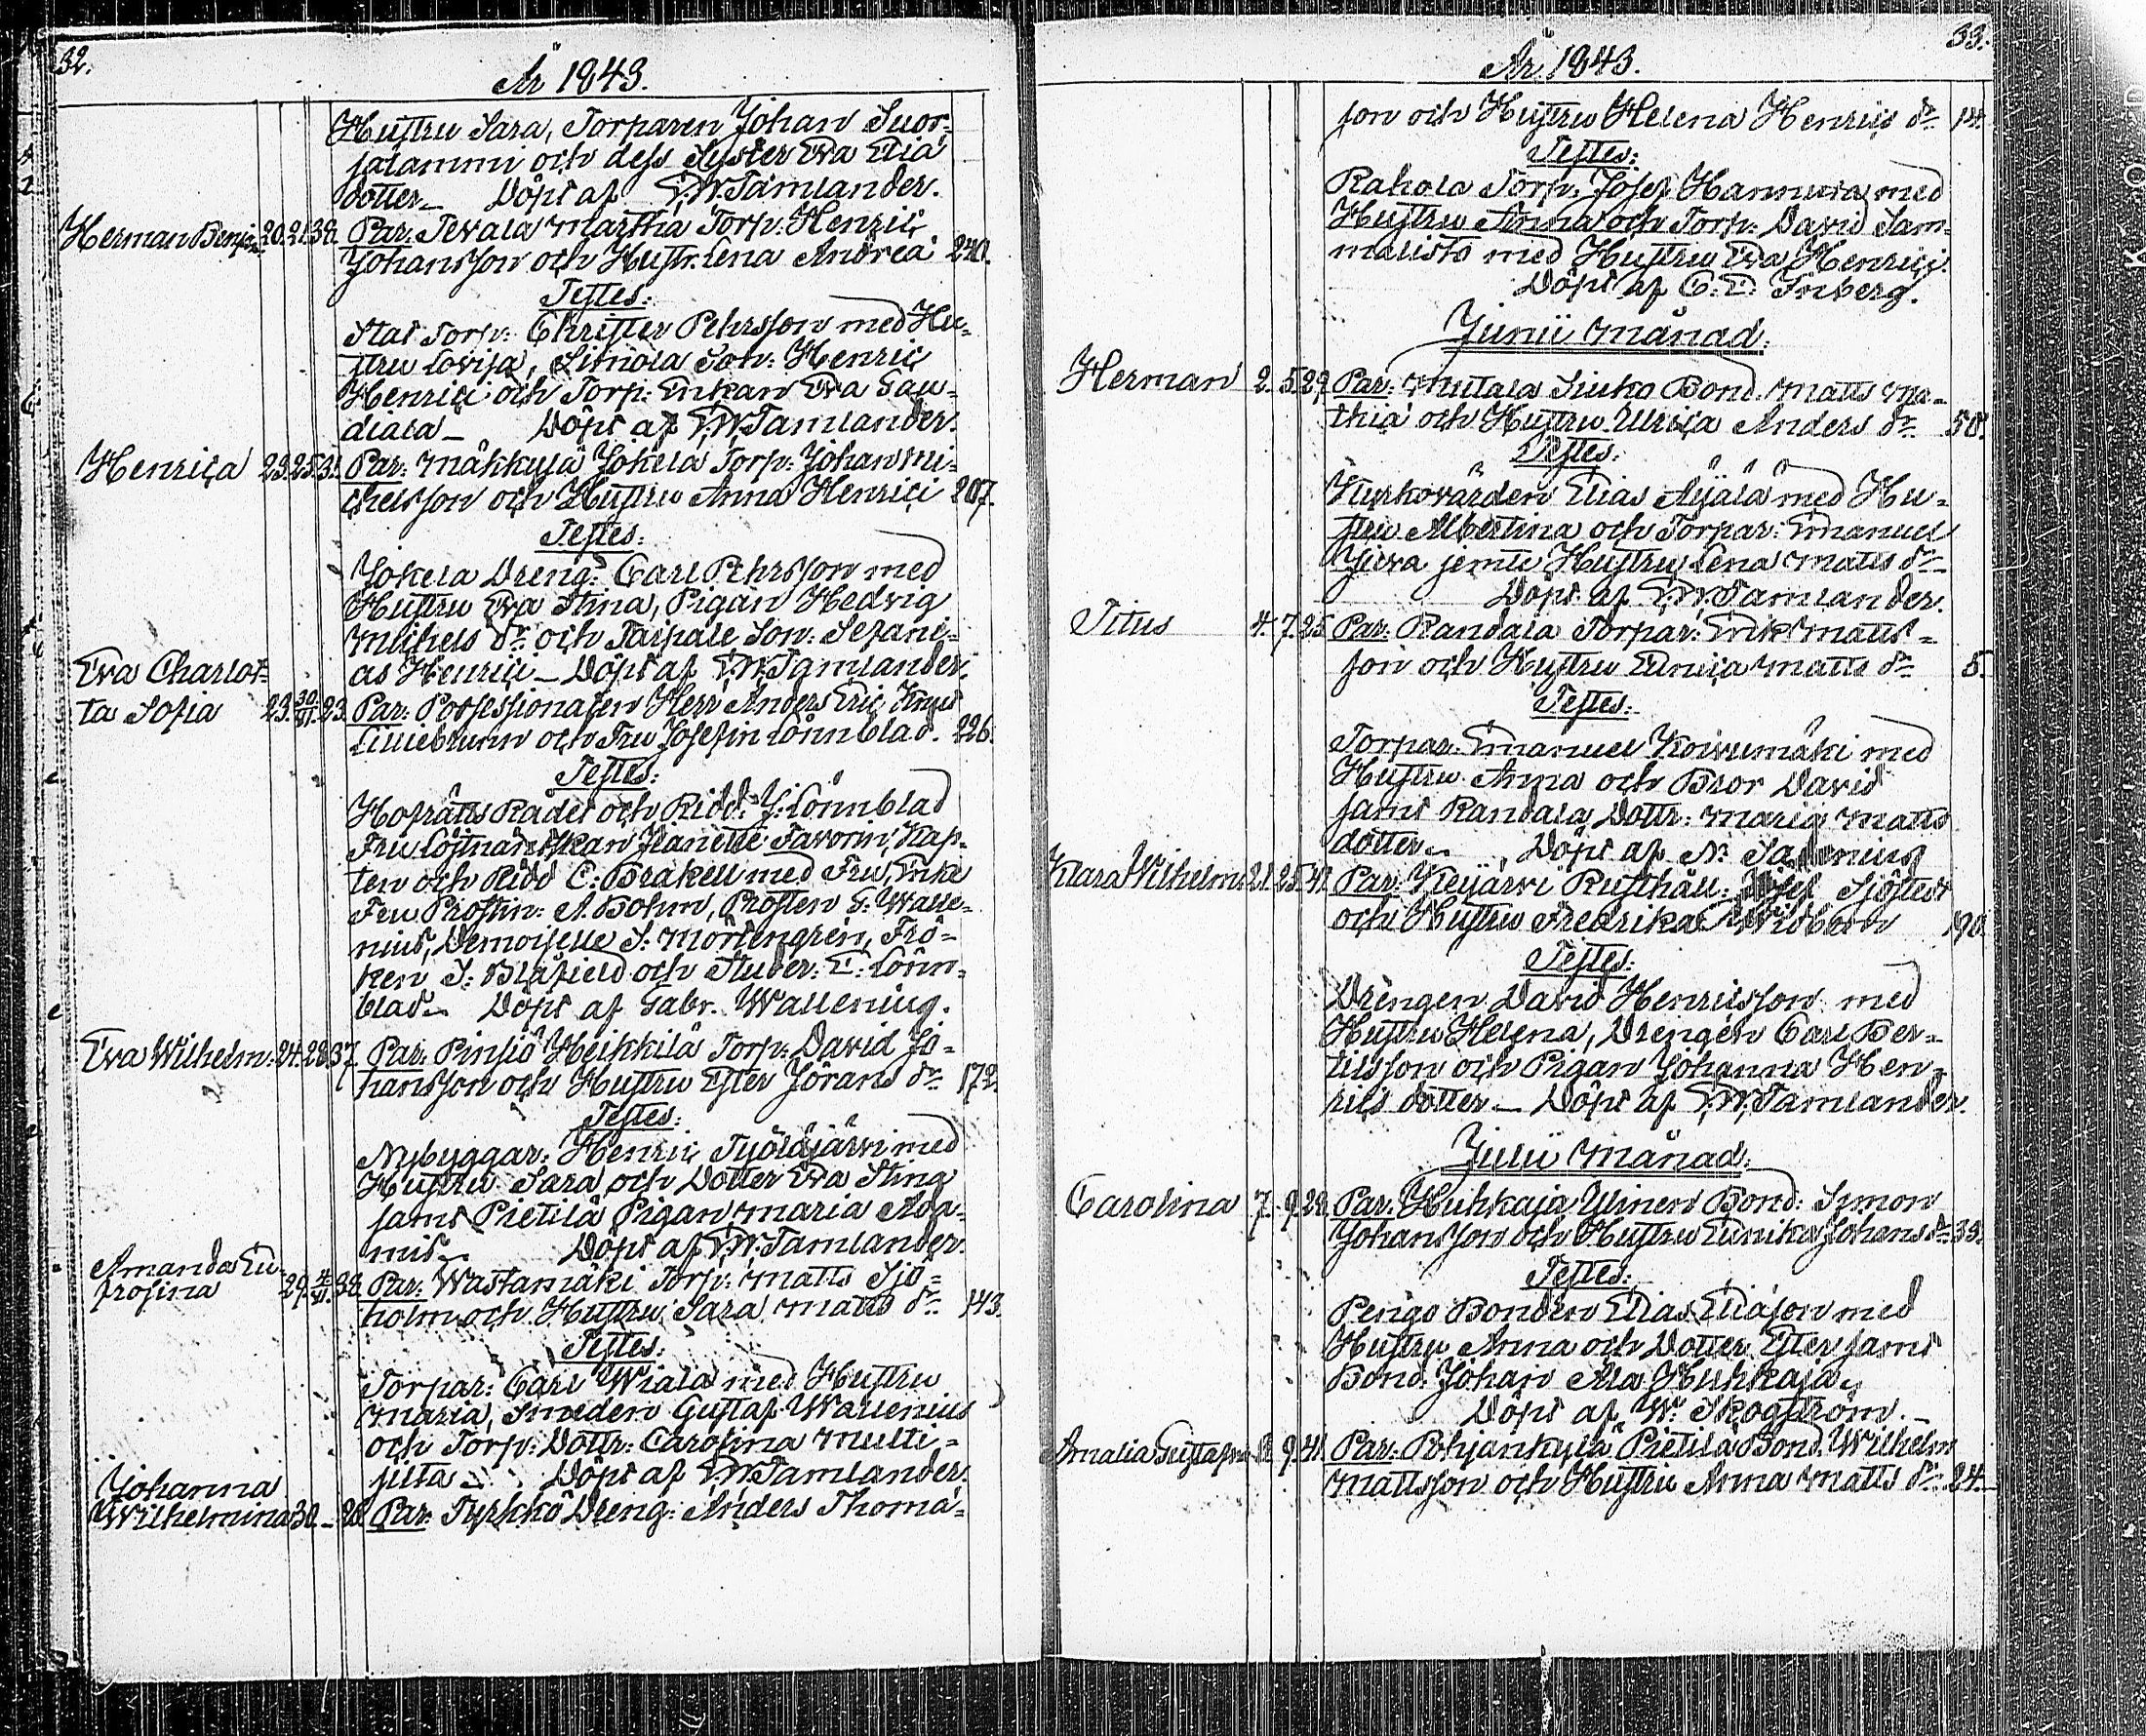 32.
År 1843.
Hustru Sara, Torparen Johan Suor-
salammi och dess Syster Eva Elia
dotter_ Döpt af F.W. Tamlander.
Herman Benja: 20. 21. 38. Par: Tevala Marttia Torp: Henric
Johansson och Hustr. Lena Andreæ 240.
Testes:
Torp: Christer Pehrsson med Hu-
stru Lovisa, Simola Son: Henric
Henrici och Torp: Enkan Eva Gau-
diala_ Döpt af F.W. Tamlander.
Henrica 23. 25. 31. Par: Mäkkylä Jokela Torp: Johan Mi-
chelsson och Hustru Anna Henrici 207.
Testes:
Jokela Dreng: Carl Pehrsson med
Hustru Eva Stina, Pigan Hedvig
Michels dr. och Taipale Son: Sefani-
as Henrici_ Döpt af F.W. Tamlander.
Eva Charlot-
ta Sofia 23. 30/VI. 23. Par: Possessionaten Herr Anders Eric Knut
Lillebrunn och Fru Josefin Lönnblad. 226.
Testes:
Hofrätts Rådet och Ridd: J: Lönnblad
Fru Löjtnantskan Jeanette Favorin, Kap-
ten och Ridd C: Brakell med Fru, Enke
Fru Prostin: A. Bohm, Prosten G: Walle-
nius, Demoiselle S: Mörtengren, Frö-
ken S: Blåfield och Studer: E: Lönn-
blad_ Döpt af Gabr. Wallenius.
Eva Wilhelm: 24. 28. 37. Par: Pinsiö Heikkilä Torp: David Jo-
hansson och Hustru Ester Jörans dr. 172.
Testes:
Nybyggar: Henric Työläjärvi med
Hustru Sara och Dotter Eva Stina
samt Pietilä Pigan Maria Ada-
mid_ Döpt af F.W. Tamlander.
Amanda Eu-
frosina 29. 4/VI. 38. Par: Wastamäki Torp: Matts Sjö-
holm och Hustru Sara Matts dr. 143.
Testes:
Torpar: Carl Wiala med Hustru
Maria, Smeden Gustaf Wallenius
och Torp: Dottr: Carolina Multi-
silta_ Döpt af F.W. Tamlander.
Johanna
Wilhelmina 30. _ 28. Par: Tyrkkö Dreng: Anders Thoma-
33.
År 1843.
son och Hustru Helena Henrics dr. 14.
Testes:
Rahola Torp: Josef Hannula med
Hustru Anna och Torp: David Sam-
malisto med Hustru Eva Henrici.
Döpt af C: E:
Junii Månad.
Herman 2. 5. 29. Par: Mutala Siuko Bond. Matts Ma-
thiæ och Hustru Ulrica Anders dr. 50.
Testes:
Kyrkovärden Elias Äijälä med Hu-
stru Albertina och Torpar: Emanuel
jemte Hustru Lena Matts dr.
Döpt af F.W. Tamlander.
Titus 4. 7. 25. Par: Randala Torpar: Erik Matts-
son och Hustru Eunica Matts dr. 5.
Testes:
Torpar: Emanuel Koivumäki med
Hustru Anna och Bror David
samt Randala Dottr: Maria Matts
dotter_ Döpt af N: Salenius
Klara Wilhelm: 21. 25. 41. Par: Keijärvi Rusthåll: Josef Sjöstedt
och Hustru Fredrika Widbom 190.
Testes:
Drengen David Henricsson med
Hustru Helena, Drengen Carl Ber-
tilsson och Pigan Johanna Hen-
rics dotter_ Döpt af F.W. Tamlander.
Julii Månad.
Carolina 7. 9. 29. Par: Huhkaja Ulinen Bond: Simon
Johansson och Hustru Eunika Johans dr. 39.
Testes:
Pengo Bonden Elias Eliason med
Hustru Anna och Dotter Ester samt
Bond: Johan Ala Huhkaja_
Döpt af W: Skogström._
Amalia Gustafva 8. 9. 41. Par: Pohjankylä Pietilä Bond. Wilhelm
Mattsson och Hustru Anna Matts dr. 24.